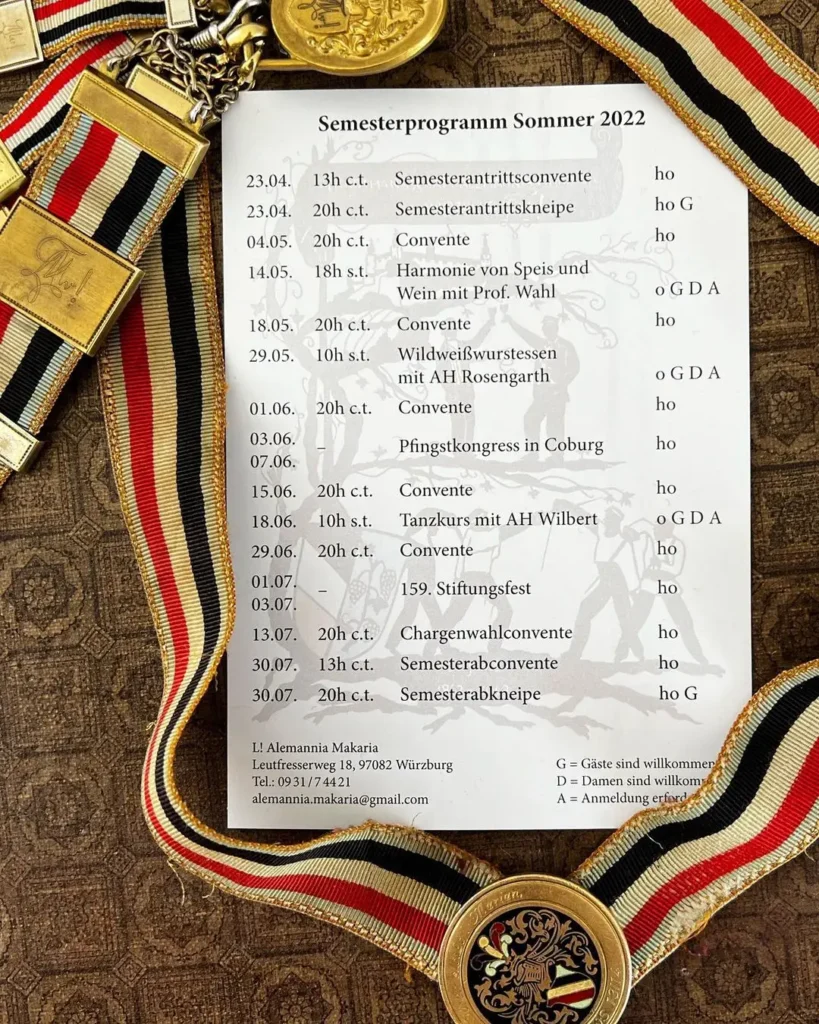 Semesterprogramm Sommer 2022
23.04. 13h c.t. Semesterantrittsconvente ho
23.04. 20h c.t. Semesterantrittskneipe ho G
04.05. 20h c.t. Convente ho
14.05. 18h s.t. Harmonie von Speis und
Wein mit Prof. Wahl o G D A
18.05. 20h c.t. Convente ho
29.05. 10h s.t. Wildweißwurstessen
mit AH Rosengarth o G D A
01.06. 20h c.t. Convente ho
03.06.
– Pfingstkongress in Coburg ho
07.06.
15.06. 20h c.t. Convente ho
18.06. 10h s.t. Tanzkurs mit AH Wilbert o G D A
29.06. 20h c.t. Convente ho
01.07.
– 159. Stiftungsfest ho
03.07.
13.07. 20h c.t. Chargenwahlconvente ho
30.07. 13h c.t. Semesterabconvente ho
30.07. 20h c.t. Semesterabkneipe ho G
L! Alemannia Makaria
Leutfresserweg 18, 97082 Würzburg
Tel.: 09 31 / 7 44 21
alemannia.makaria@gmail.com
G = Gäste sind willkommen
D = Damen sind willkomm
A = Anmeldung erford